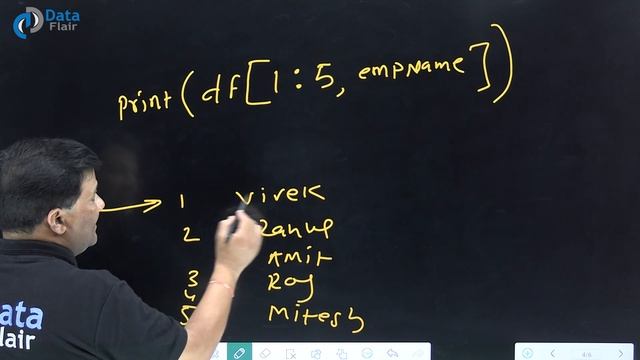 Data
Flair
print(df[1:5, empName])
1 Vivek
2 Rahul
Amit
3 Raj
4
5 Mitesh
ata
Flair
4/6